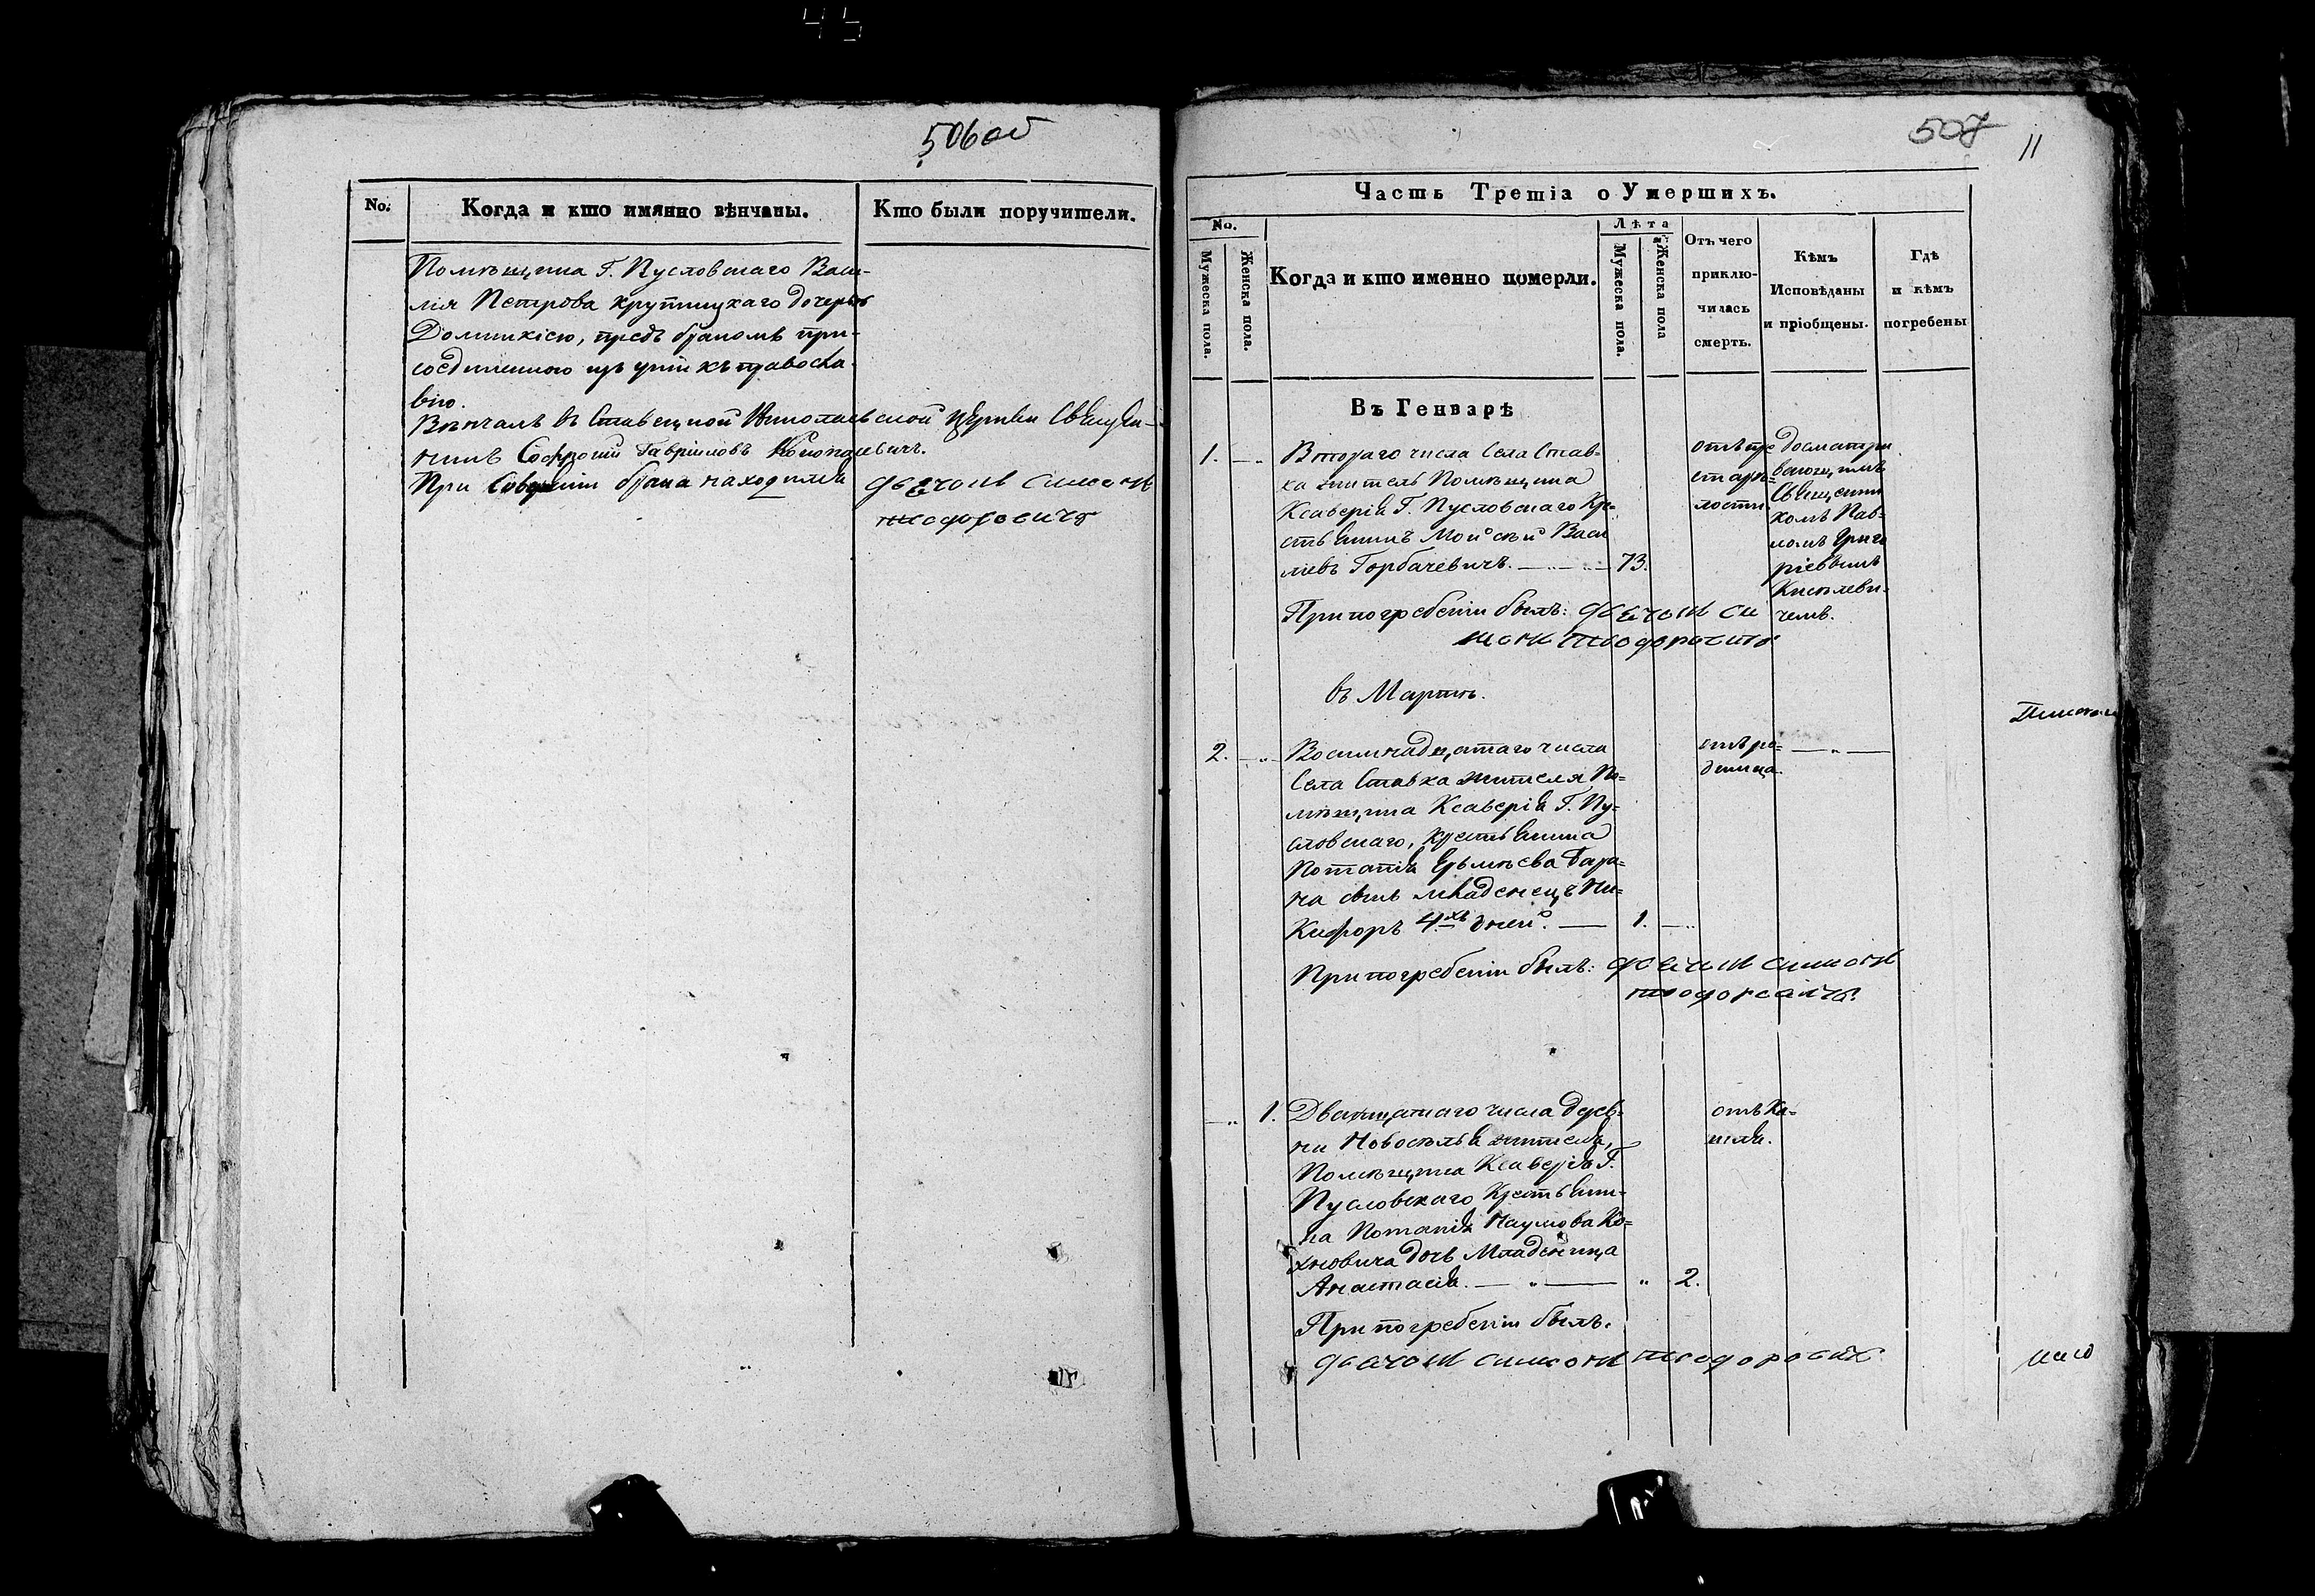 506об
No.
Когда и кто имянно вѣнчаны.
Кто были поручители.
Помѣщика Г. Пусловскаго Васи-
лія Петрова Крупицкаго дочерью
Доминикіею, предъ бракомъ при-
соединенною изъ уніи къ правосла-
вію.
Вѣнчалъ въ Ставецкой Николаевской церкви Священ-
никъ Софроній Гавріиловъ
При бракѣ находился дьячокъ Симеонъ
теодоровичъ
507
11
Часть Третіа о Умершихъ.
No.
Мужеска пола.
Женска пола.
Когда и кто именно померли.
Лѣта
Мужеска пола.
Женска пола
Отъ чего
приклю-
чилась
смерть.
Кѣмъ
Исповѣданы
и пріобщены.
Гдѣ
и кѣмъ
погребены
Въ Генварѣ
1.
Втораго числа Села Став-
ка житель Помѣщика
Ксаверія Г. Пусловскаго Кре-
стьянинъ Мойсѣй Васи
ліевъ Горбачевичъ.
73.
отъ пре
старѣ-
лости.
досматри
вающимъ
Священни
комъ Пав-
ломъ Григо
ріевымъ
Киселеви-
чемъ.
При погребеніи былъ: дьячокъ Си
меонъ теодоровичъ
въ Мартѣ.
2.
Восимнадцатаго числа
Села Ставка жителя По-
мѣщика Ксаверія Г. Пу-
словскаго, крестьянина
Потапія Ерьмѣева Бара-
на сынъ младенецъ Ни-
кифоръ 4хъ дней.
1.
отъ ро-
димца.
При погребеніи былъ: дьячокъ Симеонъ
теодоровичъ
1.
Двадцатаго числа дерев-
ни Новоселья жителя,
Помѣщика Ксаверія Г.
Пусловскаго Крестьяни-
на Потапія Наумова Ко-
хновича дочь Младеница
Анастасія.
2.
отъ ка-
шля.
При погребеніи былъ.
дьячокъ Симеонъ теодоровичъ